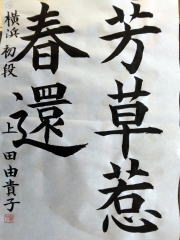 芳草惹
春還
横浜 初段 上田由貴子